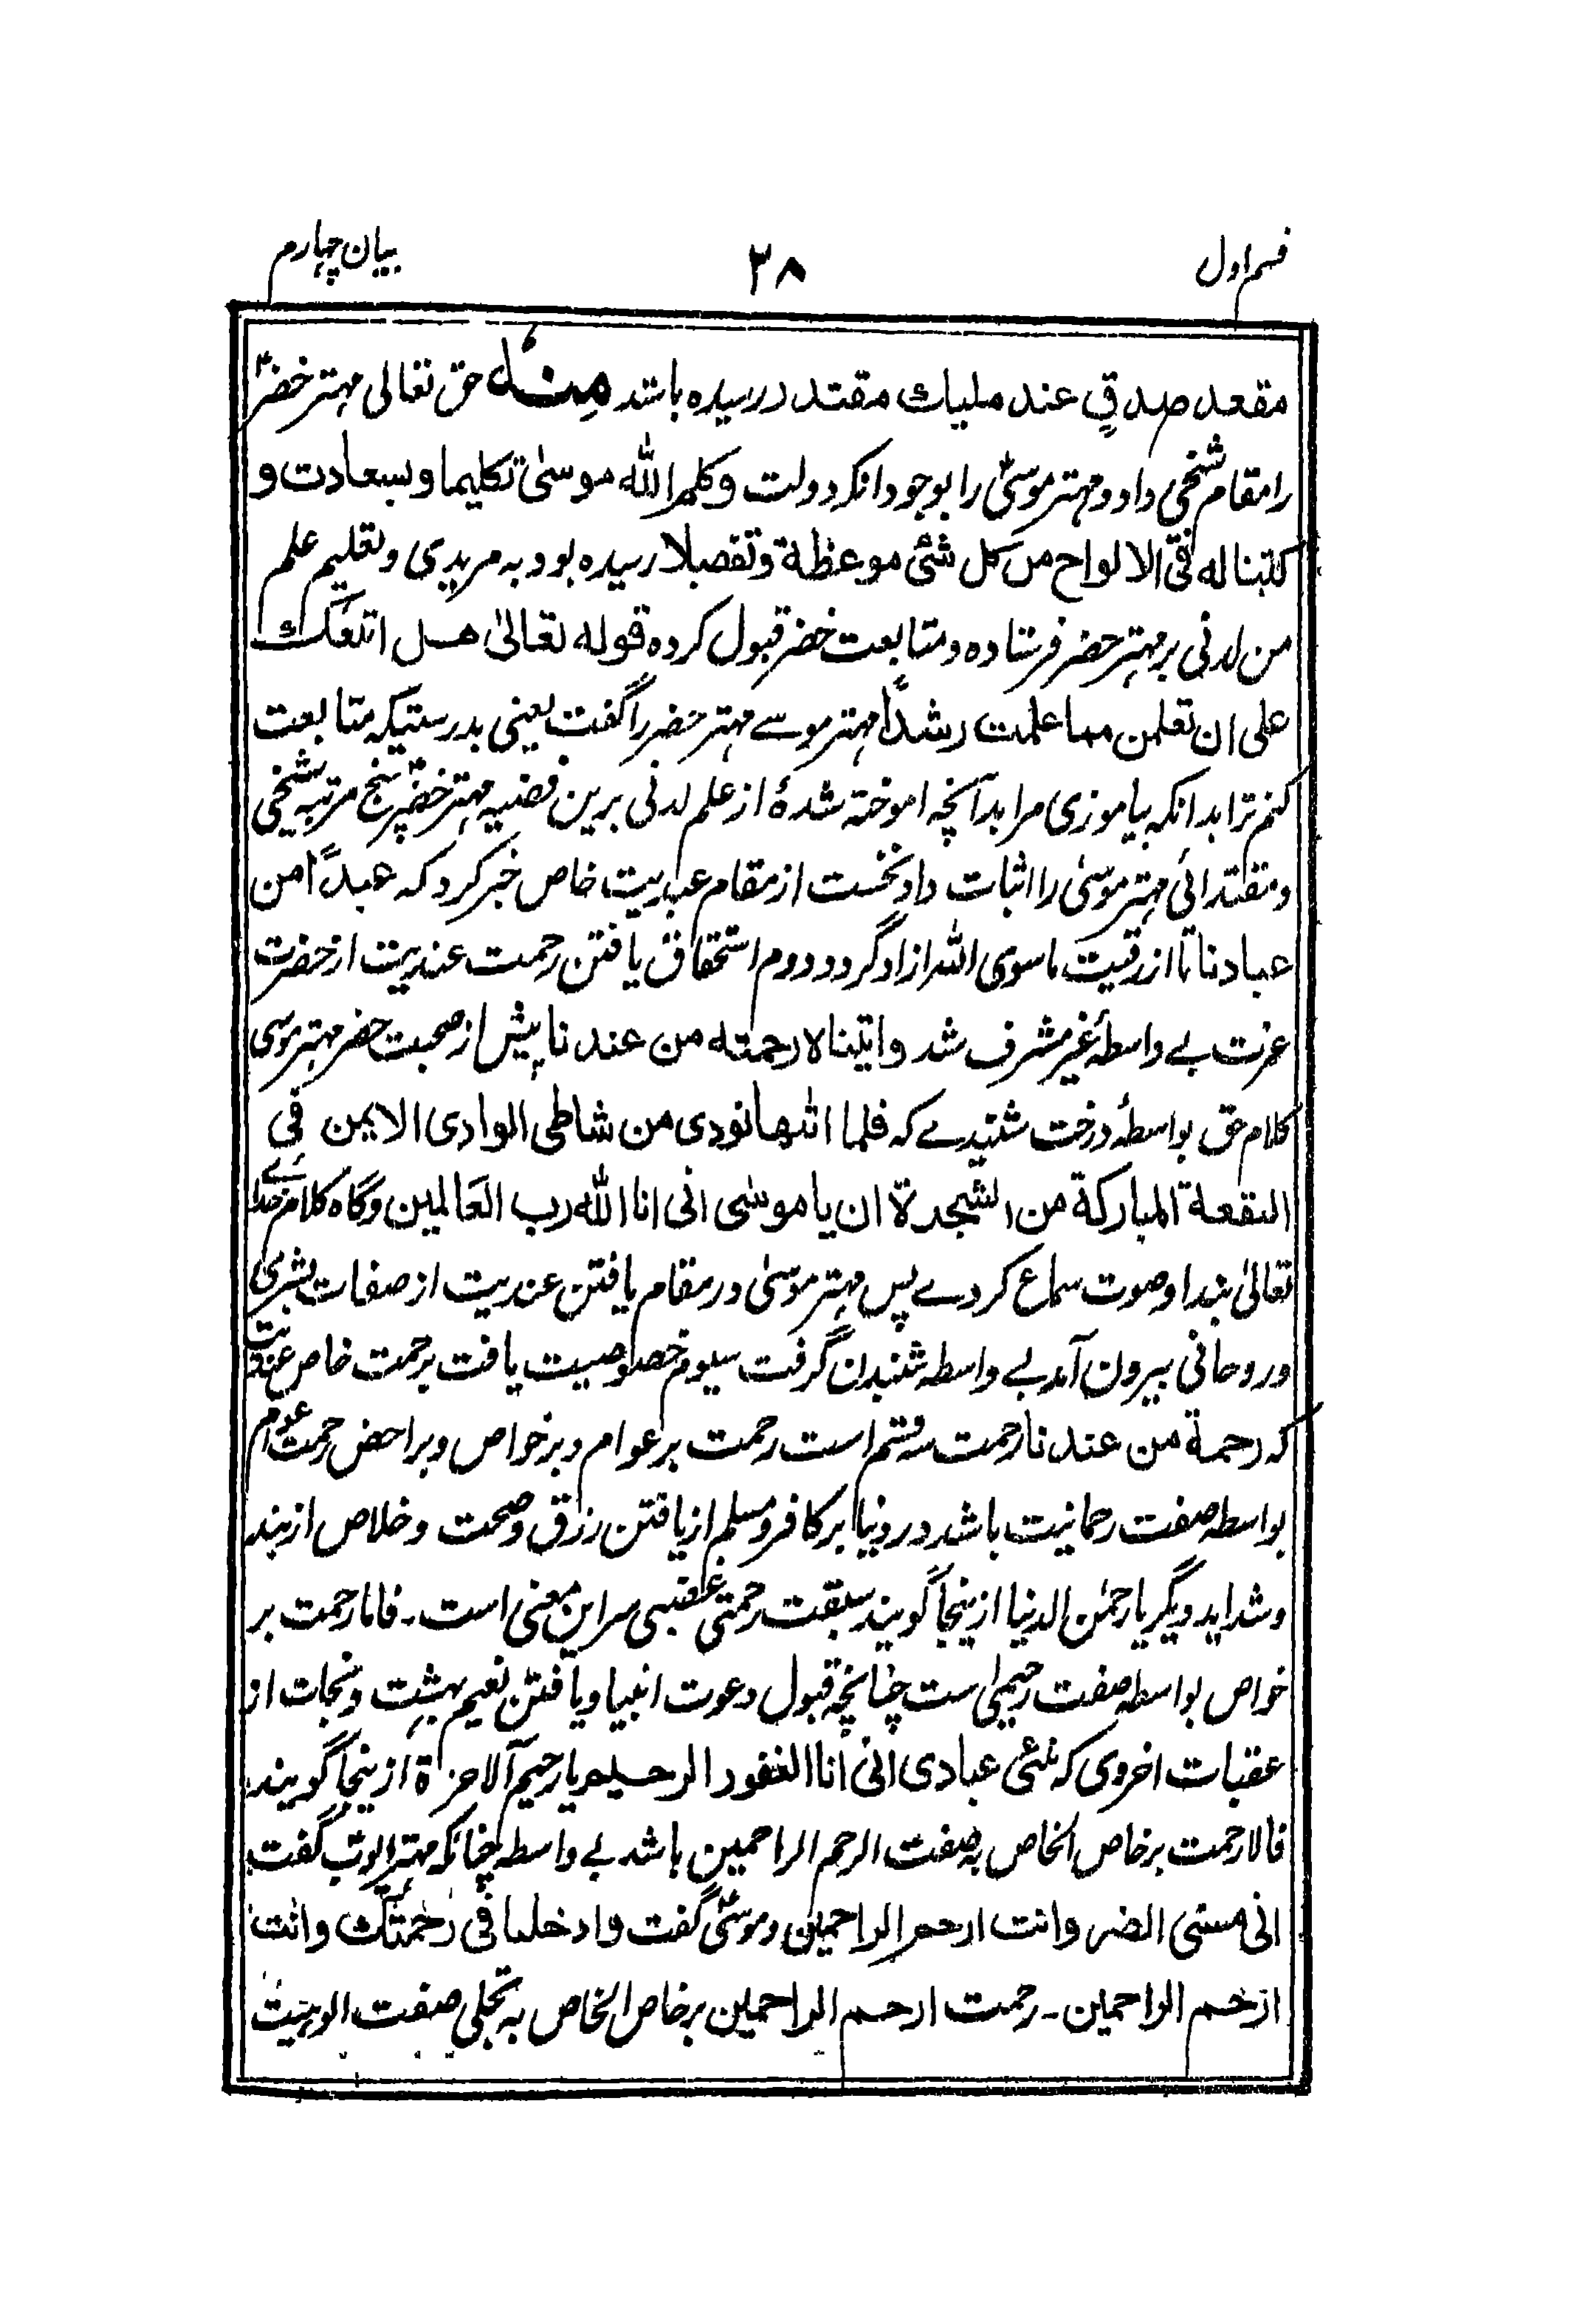 قسم اول
۳۸
بیان چہارم
مقعد صدقٍ عند ملیك مقتدر رسیده باشد مِنهُ حق تعالی مہتر خضرؑ
را مقام شیخی داد و مہتر موسیٰؑ را بوجود انکہ دولت وکلم اللّٰه موسیٰ تکلیما وسعادت و
کتبنا له فی الالواح من کل شئی موعظة وتفصیلا رسیده بود به مریدی و تعلیم علم
من لدنی بر مہتر خضر فرستاده و متابعت خضر قبول کرده قوله تعالیٰ هل اتبعك
علی ان تعلمن مما علمت رشداً مہتر موسے مہتر خضر را گفت یعنی بدرستیکہ متابعت
کنم ترا بدانکہ بیاموزی مرا بدآنچہ اموختہ شدۂ از علم لدنی برین قضیہ مہتر خضرؑ پنج مرتبہ شیخی
و مقتدائی مہتر موسیٰؑ را اثبات داد نخست از مقام عبدیت خاص خبر کرد کہ عبدًا من
عبادنا تا از رقیت ما سوی اللّٰه ازاد گردد و دوم استحقاق یافتن رحمت عندیت از حضرت
عزت بے واسطۂ غیر مشرف شد واتیناه رحمته من عندنا پیش از صحبت خضر مہتر موسی
کلام حق بواسطۂ درخت شنیدے کہ فلما اتٰها نودی من شاطی الوادی الایمن فی
البقعة المبارکة من الشجرة ان یا موسٰی انی انا اللّٰه رب العالمین و گاه کلام خداے
تعالیٰ بندا و صوت سماع کردے پس مہتر موسیٰ در مقام یافتن عندیت از صفات بشری
و روحانی بیرون آمد بے واسطہ شنیدن گرفت سیوم خصوصیت یافت برحمت خاص عندیت
کہ رحمة من عندنا رحمت سہ قسم است رحمت بر عوام و بر خواص و بر اخص رحمت عوام
بواسطہ صفت رحمانیت باشد در دنیا بر کافر و مسلم از یافتن رزق و صحت و خلاص از بند
و شداید دیگر یا رحمٰن الدنیا ازینجا گویند سبقت رحمتی غضبی سر این معنی است۔ فاما رحمت بر
خواص بواسطہ صفت رحیمی است چنانچہ قبول دعوت انبیا و یافتن نعیم بہشت و نجات از
عقبات اخروی کہ نبئی عبادی انی انا الغفور الرحیم یا رحیم الاخرة ازینجا گویند
فالا رحمت بر خاص الخاص بہ صفت الرحم الراحمین باشد بے واسطہ چنانکہ مہتر ایوبؑ گفت
انی مسنی الضر وانت ارحم الراحمین و موسیٰؑ گفت وادخلنا فی رحمتك وانت
ارحم الراحمین۔ رحمت ارحم الراحمین بر خاص الخاص بہ تجلی صفت الوہیت